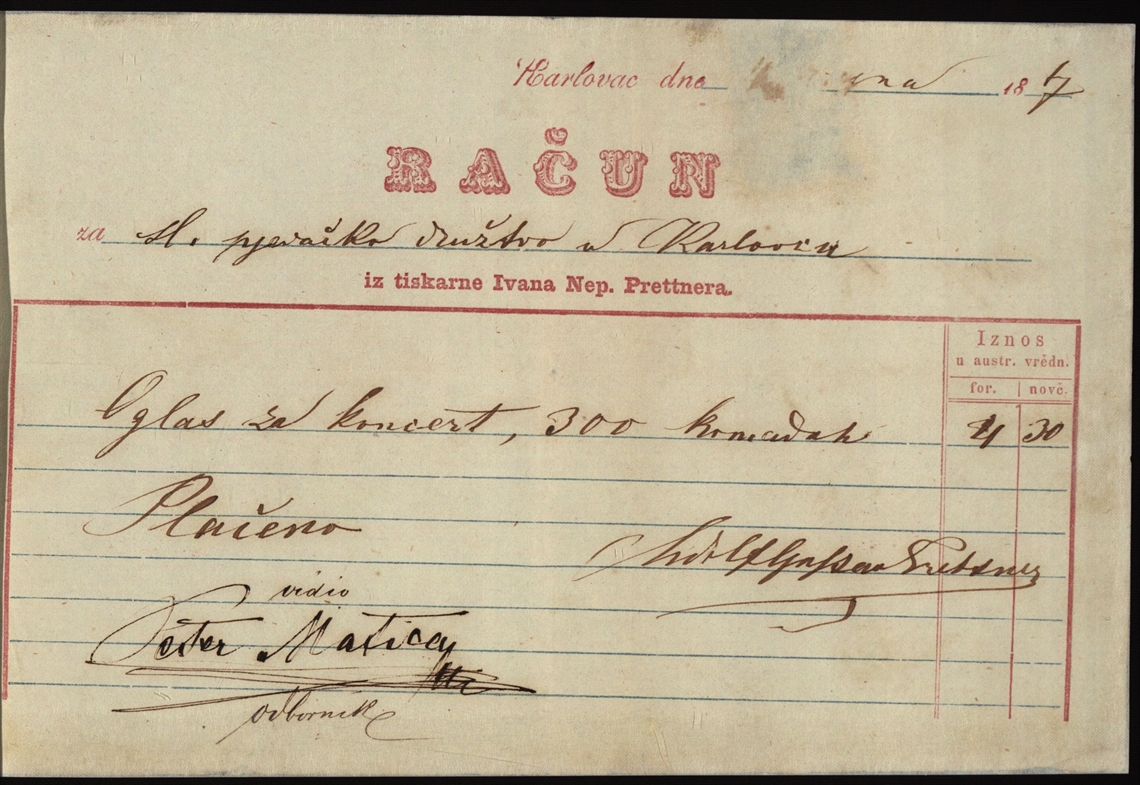 Karlovac dne 187
RAČUN
za sl. pjevačko družtvo u Karlovcu
iz tiskarne Ivana Nep. Prettnera.
Iznos
u austr. vrědn.
for. novč.
Oglas za koncert, 300 komadah 4 30
Plaćeno
Prettner
vidio
Peter Matica
odbornik